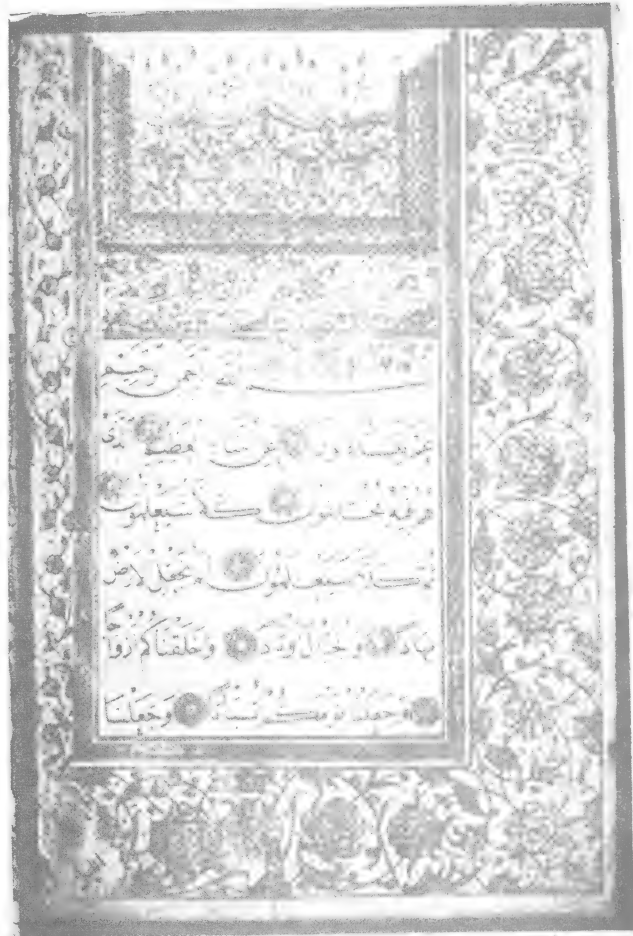 بسم الله الرحمن الرحيم
عم يتساءلون عن النبإ العظيم الذى
هم فيه مختلفون كلا سيعلمون
ثم كلا سيعلمون الم نجعل الارض
مهادا والجبال اوتادا وَخَلَقْنَاكُمْ أَزْوَاجًا
وَجَعَلْنَا نَوْمَكُمْ سُبَاتًا وَجَعَلْنَا